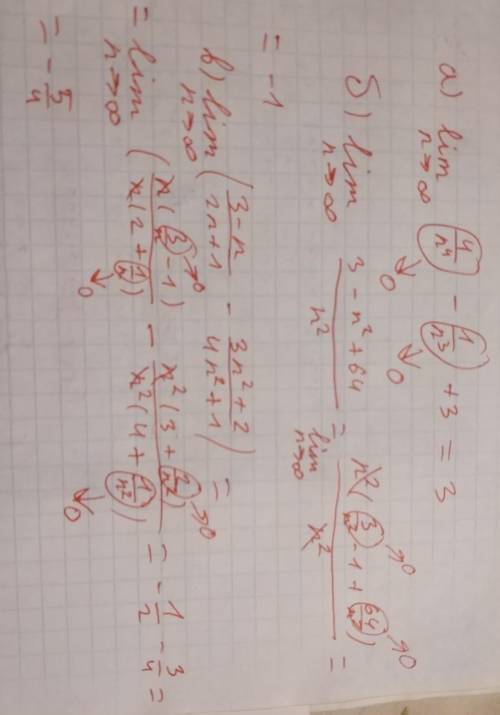 а) lim n→∞ (4/n⁴ →0) - (1/n³ →0) + 3 = 3
б) lim n→∞ (3 - n² + 64)/n² = lim n→∞ n²(3/n² →0 - 1 + 64/n² →0)/n² =
= -1
в) lim n→∞ ((3-n)/(2n+1) - (3n²+2)/(4n²+1)) =
= lim n→∞ (n(3/n →0 - 1)/n(2 + 1/n →0) - n²(3 + 2/n² →0)/n²(4 + 1/n² →0)) = -1/2 - 3/4 =
= -5/4